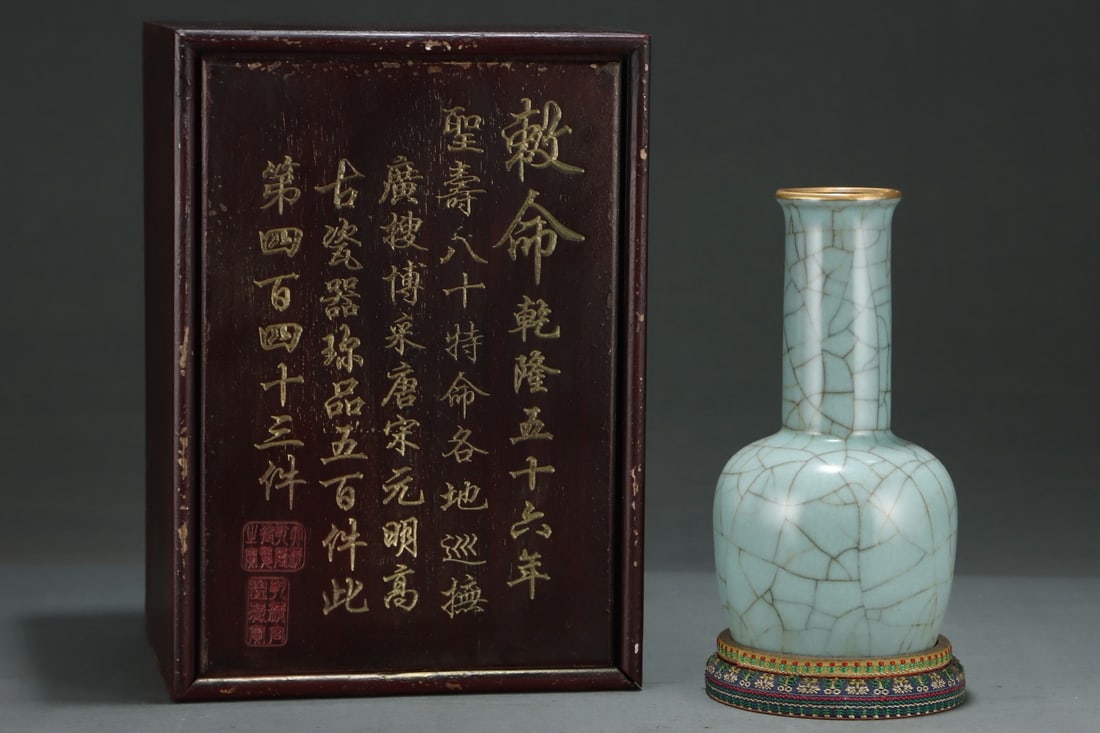 敕命乾隆五十六年
聖壽八十特命各地巡撫
廣搜博采唐宋元明高
古瓷器珎品五百件此
第四百四十三件